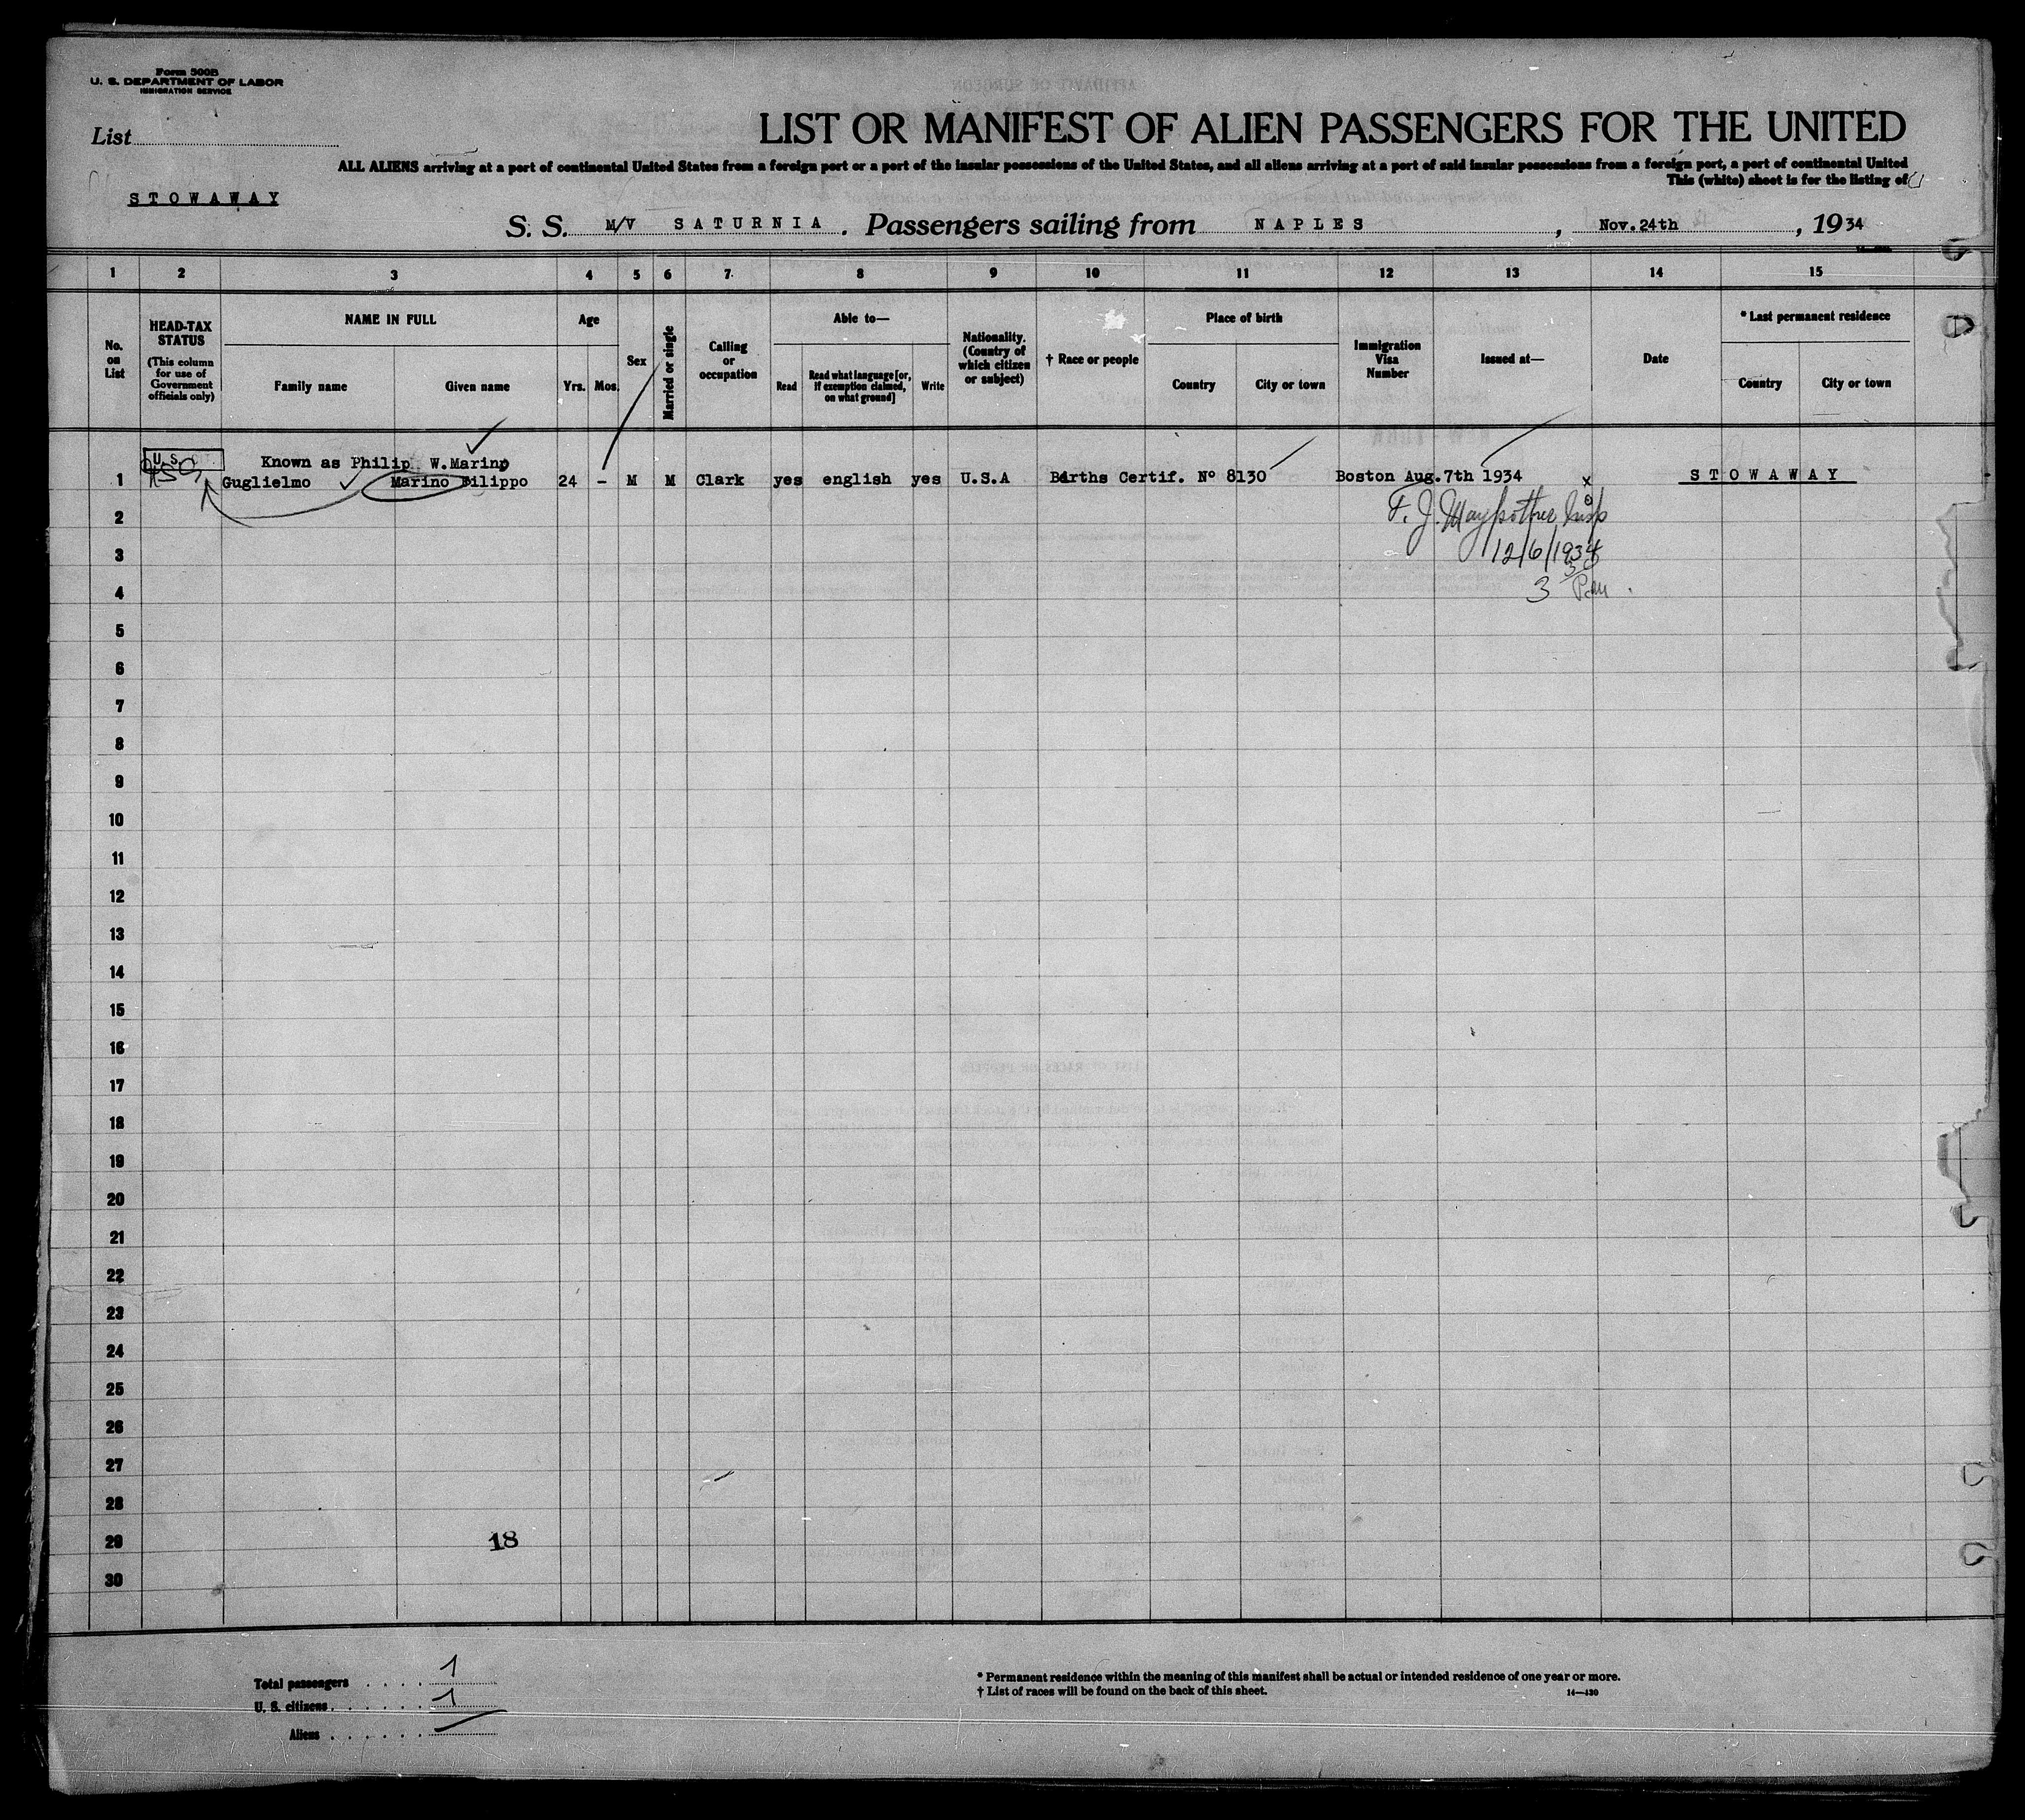 Form 500B
U. S. DEPARTMENT OF LABOR
IMMIGRATION SERVICE
List
LIST OR MANIFEST OF ALIEN PASSENGERS FOR THE UNITED
ALL ALIENS arriving at a port of continental United States from a foreign port or a port of the insular possessions of the United States, and all aliens arriving at a port of said insular possessions from a foreign port, a port of continental United
This (white) sheet is for the listing of
STOWAWAY
S. S. M/V SATURNIA. Passengers sailing from NAPLES, Nov.24th, 1934
1 2 3 4 5 6 7 8 9 10 11 12 13 14 15
No. on List
HEAD-TAX STATUS (This column for use of Government officials only)
NAME IN FULL
Family name Given name
Age
Yrs. Mos.
Sex
Married or single
Calling or occupation
Able to—
Read
Read what language [or, if exemption claimed, on what ground]
Write
Nationality. (Country of which citizen or subject)
† Race or people
Place of birth
Country City or town
Immigration Visa Number
Issued at—
Date
* Last permanent residence
Country City or town
U.S.
Known as Philip W.Marino
1 Guglielmo Marino Filippo 24 - M M Clark yes english yes U.S.A Births Certif. Nº 8130 Boston Aug.7th 1934 x STOWAWAY
2 F. J. Insp
3 12/6/1934
4 3
5
6
7
8
9
10
11
12
13
14
15
16
17
18
19
20
21
22
23
24
25
26
27
28
29 18
30
Total passengers 1
U. S. citizens 1
Aliens
* Permanent residence within the meaning of this manifest shall be actual or intended residence of one year or more.
† List of races will be found on the back of this sheet.
14—430